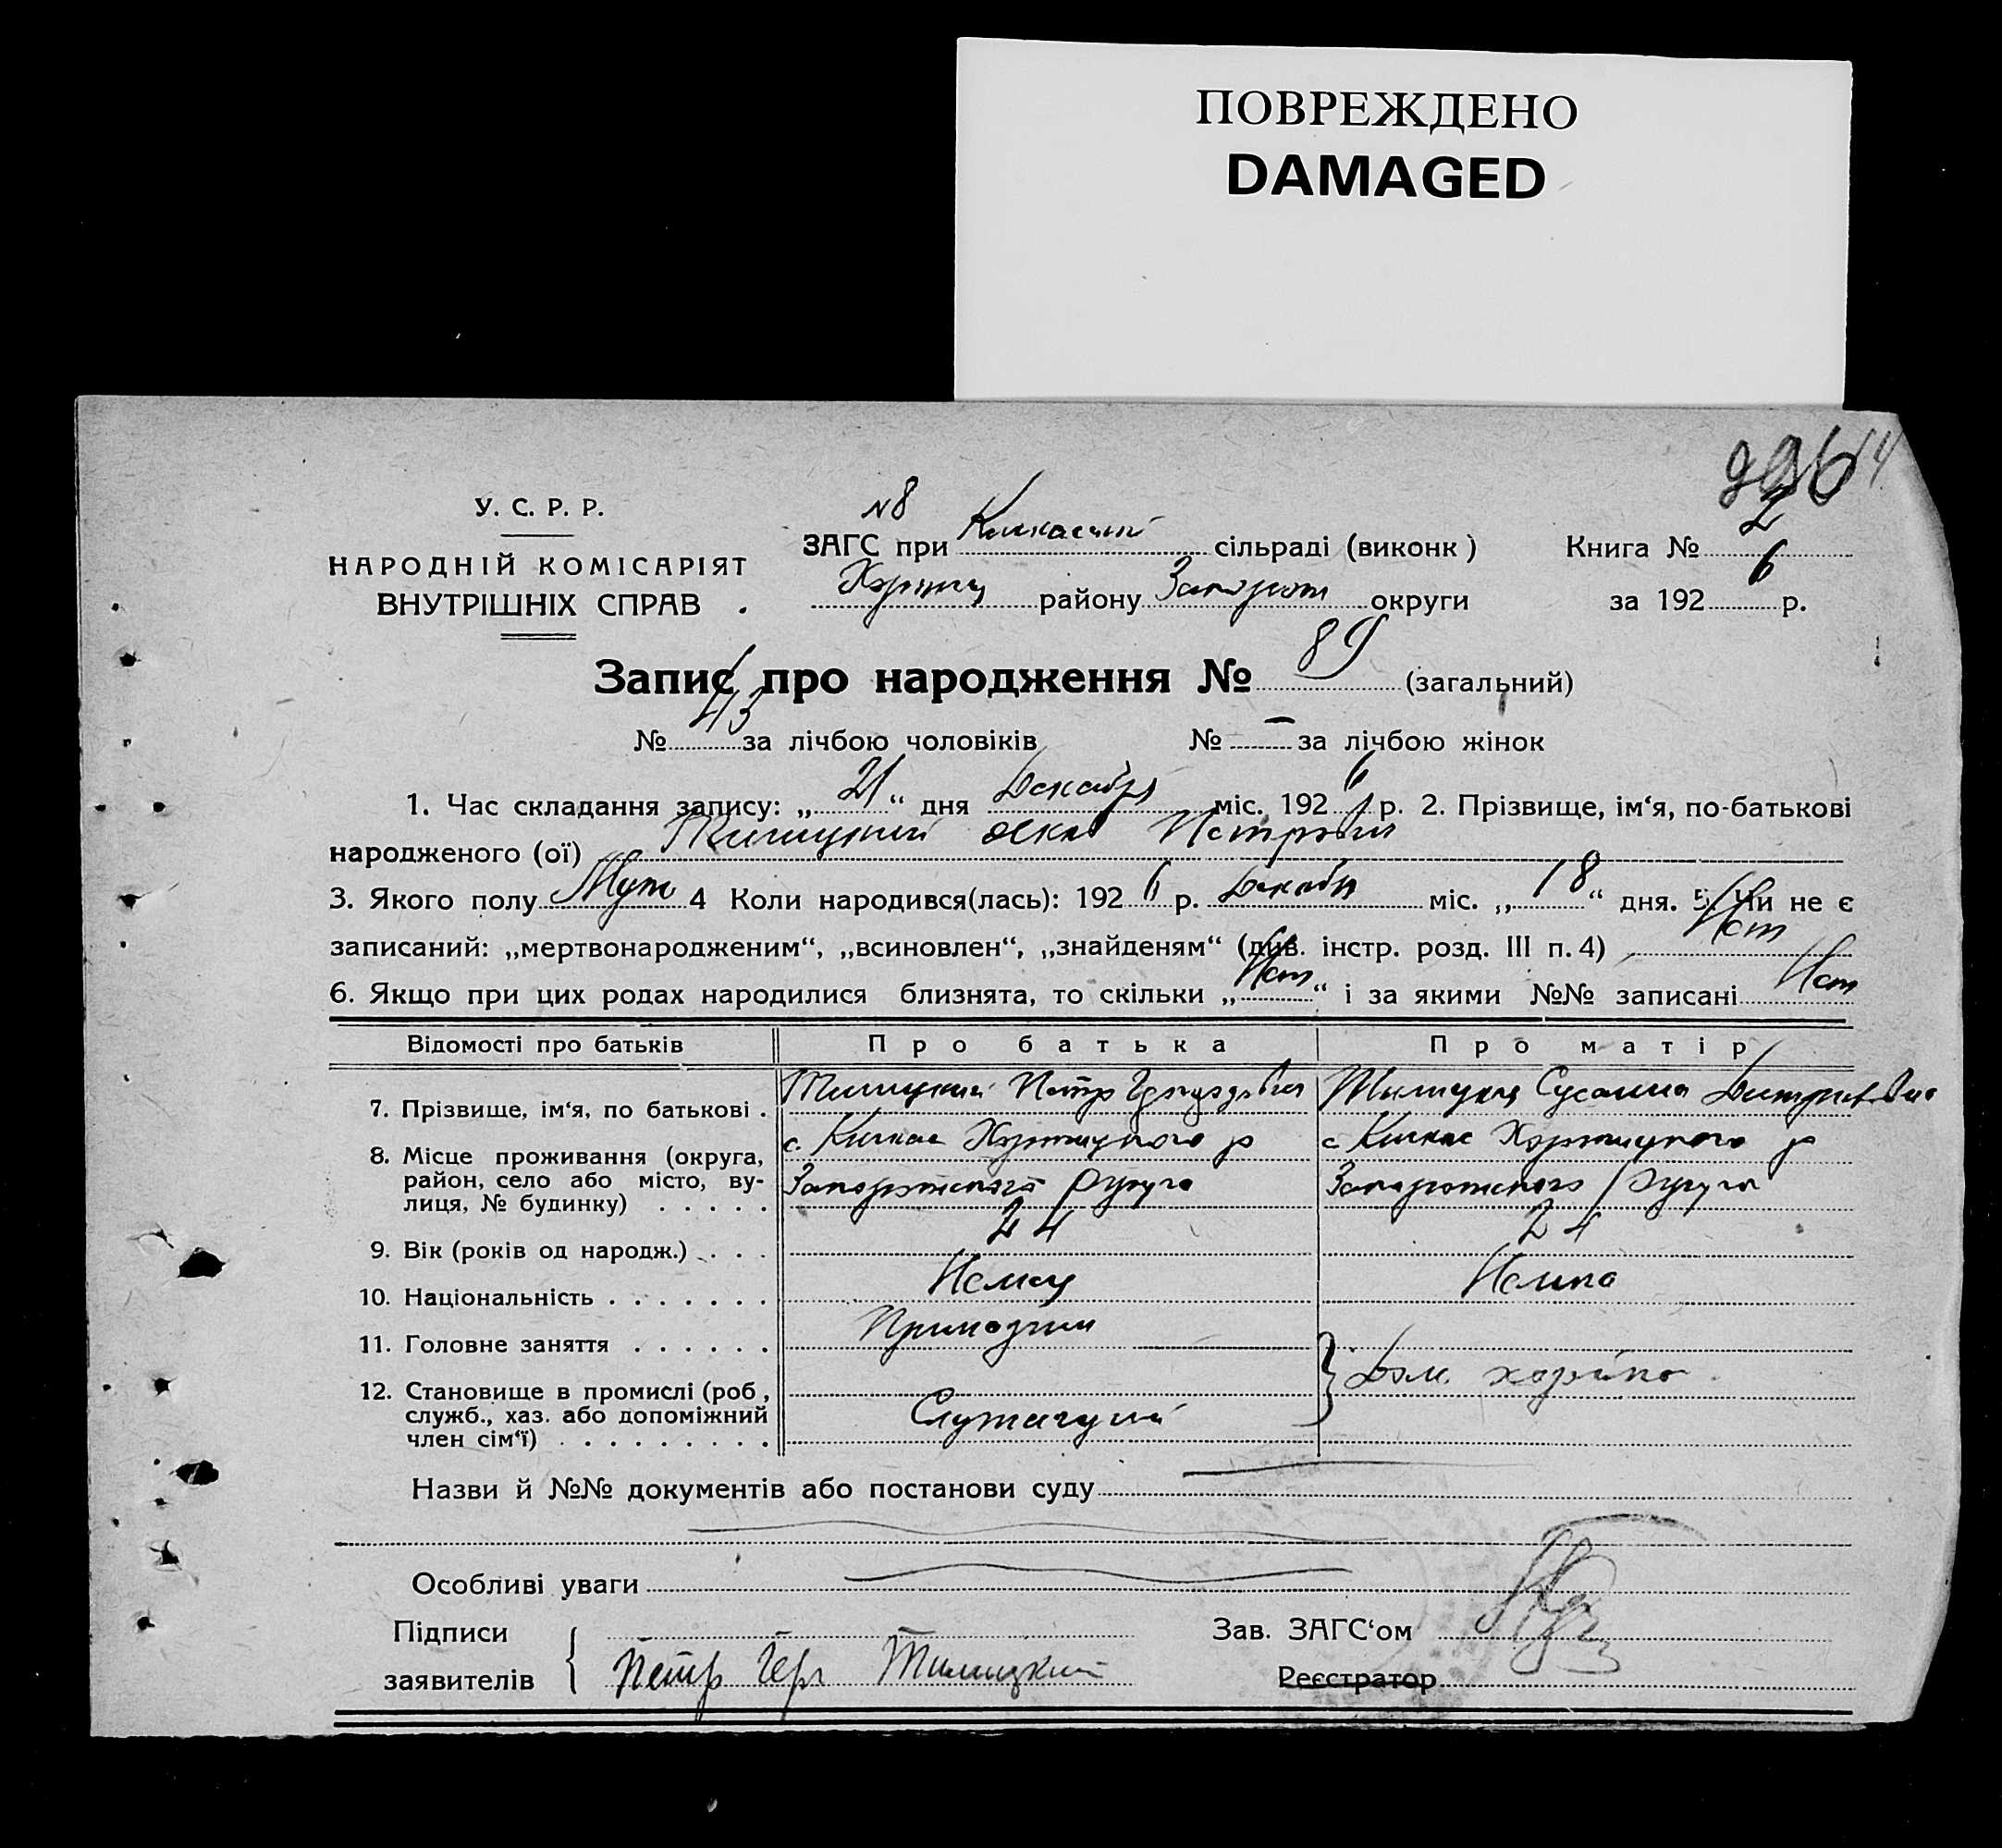 ПОВРЕЖДЕНО
DAMAGED
У. С. Р. Р.
НАРОДНІЙ КОМІСАРІЯТ
ВНУТРІШНІХ СПРАВ
№8
ЗАГС при Кичкасский сільраді (виконк)
Хортиц району Запорож округи
Книга № 2
за 1926 р.
Запис про народження № 89 (загальний)
№ 43 за лічбою чоловіків № — за лічбою жінок
1. Час складання запису: „21“ дня Декабря міс. 1926 р. 2. Прізвище, ім‘я, по-батькові
народженого (ої) Тилицкий Петрович
3. Якого полу Муж 4 Коли народився(лась): 1926 р. Декабр міс. „18“ дня. 5. Чи не є
записаний: „мертвонародженим“, „всиновлен“, „знайденям“ (див. інстр. розд. III п. 4) Нет
6. Якщо при цих родах народилися близнята, то скільки „Нет“ і за якими №№ записані Нет
Відомості про батьків Про батька Про матір
7. Прізвище, ім‘я, по батькові . Тилицкий Петр Тылицкая Сусанна Дмитриевна
8. Місце проживання (округа, район, село або місто, вулиця, № будинку) . . . . . с. Кичкас Хортицкого р Запорожского Округа с Кичкас Хортицкого р Запорожского Округа
9. Вік (років од народж.) . . . 24 24
10. Національність . . . . . . . Немец Немка
11. Головне заняття . . . . . .
12. Становище в промислі (роб., служб., хаз. або допоміжний член сім‘ї) . . . . . . . . . Служащий Дом. хозяйка
Назви й №№ документів або постанови суду
Особливі уваги
Підписи
заявителів Петр Гер Тилицкий
Зав. ЗАГС‘ом
Реєстратор